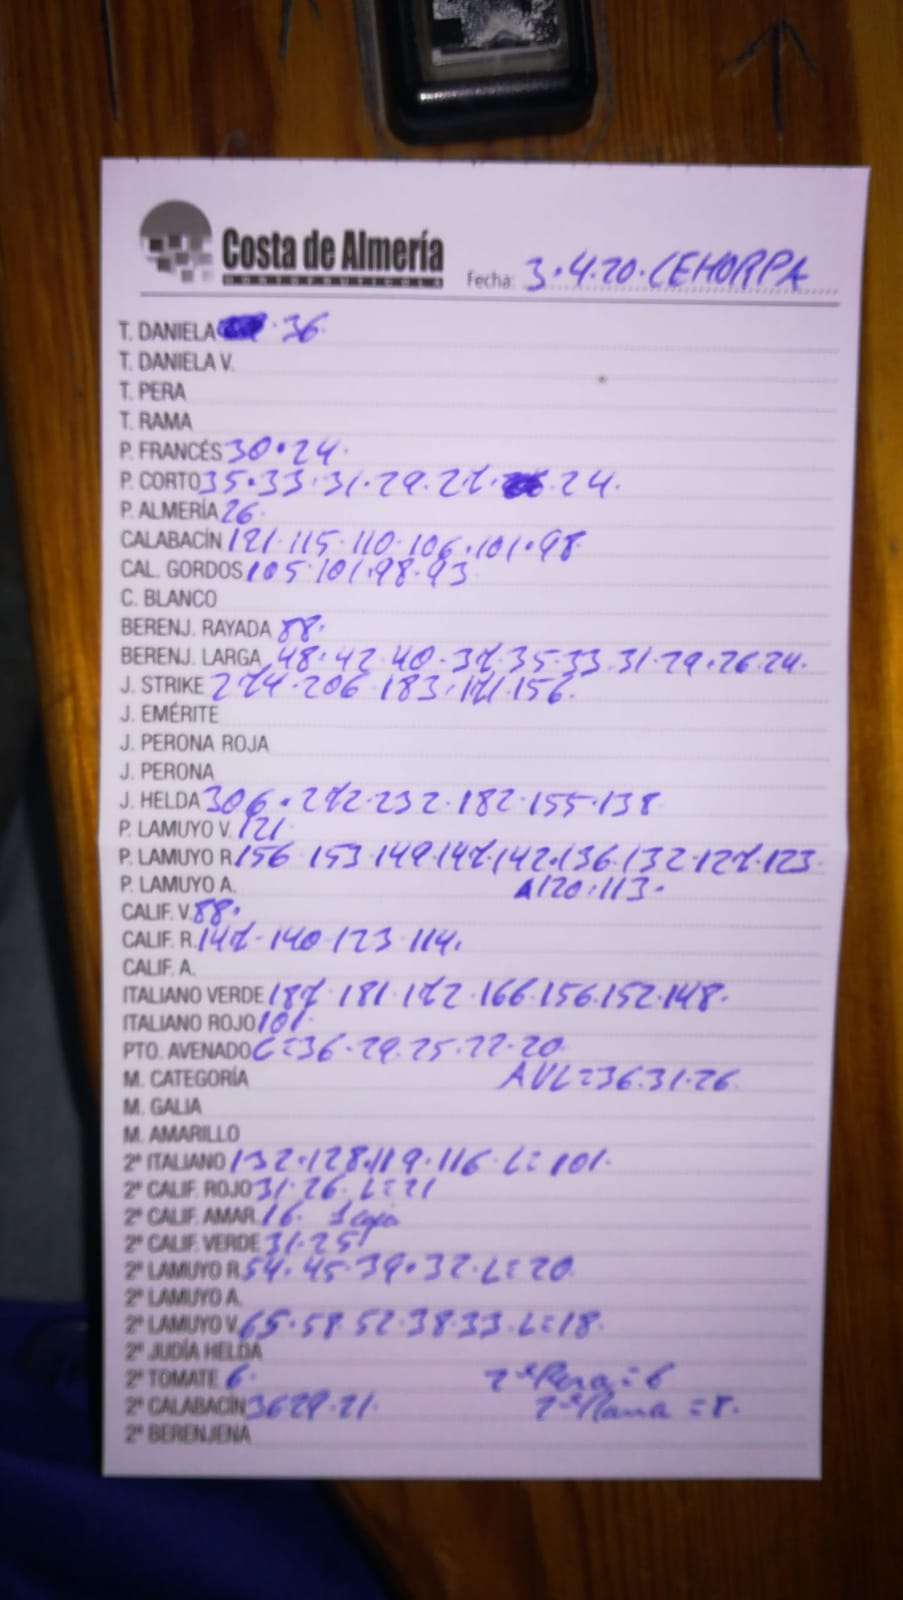 Costa de Almería
HORTOFRUTICOLA
Fecha: 3.4.20. CEHORPA
T. DANIELA 36.
T. DANIELA V.
T. PERA
T. RAMA
P. FRANCÉS 30.24.
P. CORTO 35.33.31.29.27. 24.
P. ALMERÍA 26.
CALABACÍN 121.115.110.106.101.98
CAL. GORDOS 105.101.98.93
C. BLANCO
BERENJ. RAYADA 88.
BERENJ. LARGA 48.42.40.37.35.33.31.29.26.24.
J. STRIKE 274.206.183.171.156.
J. EMÉRITE
J. PERONA ROJA
J. PERONA
J. HELDA 306.272.232.182.155.138
P. LAMUYO V. 121.
P. LAMUYO R. 156 153.149.147.142.136.132.127.123.
P. LAMUYO A. 120.113.
CALIF. V. 88.
CALIF. R. 147.140.123.114.
CALIF. A.
ITALIANO VERDE 187.181.172.166.156.152.148.
ITALIANO ROJO 101.
PTO. AVENADO C=36.29.25.22.20
M. CATEGORÍA AVL=36.31.26.
M. GALIA
M. AMARILLO
2ª ITALIANO 132.128.119.116. L=101.
2ª CALIF. ROJO 31.26. L=21
2ª CALIF. AMAR. 16. 1 caja
2ª CALIF. VERDE 31.25
2ª LAMUYO R. 54.45.39.32. L=20
2ª LAMUYO A.
2ª LAMUYO V. 65.58.52.38.33. L=18.
2ª JUDÍA HELDA
2ª TOMATE 6. 2ª Pera=6
2ª CALABACÍN 36 29.21. 2ª Rama=8.
2ª BERENJENA